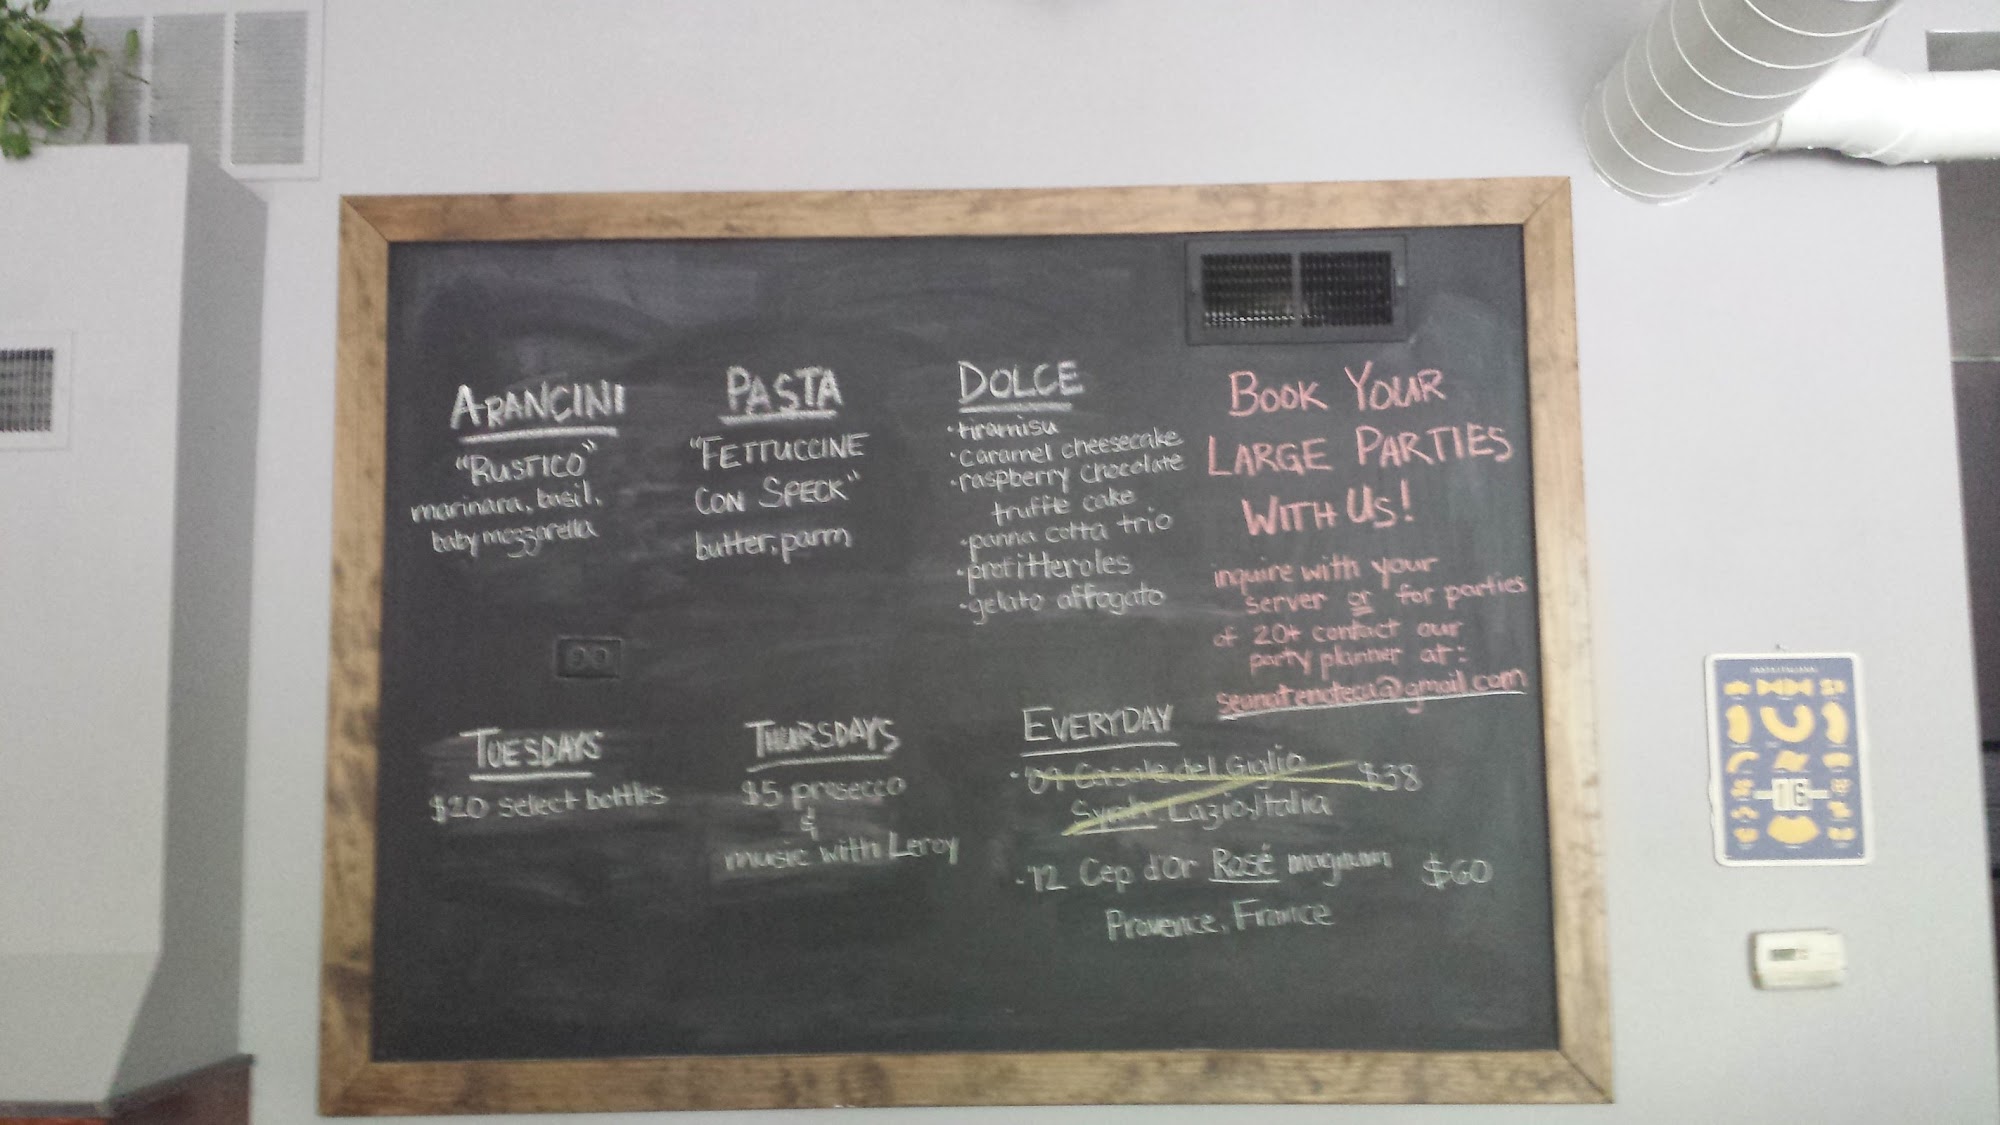 ARANCINI
"RUSTICO"
marinara, basil,
baby mozzarella
PASTA
"FETTUCCINE
CON SPECK"
butter, parm
DOLCE
• tiramisu
• caramel cheesecake
• raspberry chocolate
truffle cake
• panna cotta trio
• profitteroles
• gelato affogato
BOOK YOUR
LARGE PARTIES
WITH US!
inquire with your
server or for parties
of 20+ contact our
party planner at:
seanatenoteca@gmail.com
TUESDAYS
$20 select bottles
THURSDAYS
$5 prosecco
&
music with Leroy
EVERYDAY
• '09 Casale del Giglio $38
Syrah Lazio, Italia
• '12 Cep d'Or Rosé magnum $60
Provence, France
16